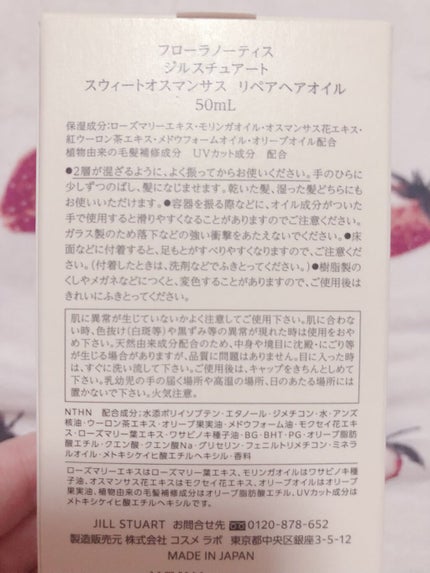 フローラノーティス
ジルスチュアート
スウィートオスマンサス リペアヘアオイル
50mL
保湿成分:ローズマリーエキス・モリンガオイル・オスマンサス花エキス・
紅ウーロン茶エキス・メドウフォームオイル・オリーブオイル配合
植物由来の毛髪補修成分 UVカット成分 配合
●2層が混ざるように、よく振ってからお使いください。手のひらに
少しずつのばし、髪になじませます。乾いた髪、湿った髪どちらにも
お使いいただけます。●容器を振る際などに、オイル成分がついた
手で使用すると滑りやすくなることがありますのでご注意ください。
ガラス製のため落下などの強い衝撃をあたえないでください。●床
面などに付着すると、足もとがすべりやすくなりますので、ご注意くだ
さい。(付着したときは、洗剤などでふきとってください。)●樹脂製の
くしやメガネなどにつくと、変色することがありますので、ご使用後は
きれいにふきとってください。
肌に異常が生じていないかよく注意してご使用下さい。肌に合わな
い時、色抜け(白斑等)や黒ずみ等の異常が現れた時は使用をおや
め下さい。天然由来成分配合のため、中身や境目に沈殿・にごり等
が生じる場合がありますが、品質に問題はありません。目に入った時
は、すぐに洗い流して下さい。ご使用後は、キャップをきちんとしめて
下さい。乳幼児の手の届く場所や高温の場所、日のあたる場所には
置かないで下さい。火気注意。
NTHN 配合成分:水添ポリイソブテン・エタノール・ジメチコン・水・アンズ
核油・ウーロン茶エキス・オリーブ果実油・メドウフォーム油・モクセイ花エキ
ス・ローズマリー葉エキス・ワサビノキ種子油・BG・BHT・PG・オリーブ脂肪
酸エチル・クエン酸・クエン酸Na・グリセリン・フェニルトリメチコン・ミネラ
ルオイル・メトキシケイヒ酸エチルヘキシル・香料
ローズマリーエキスはローズマリー葉エキス、モリンガオイルはワサビノキ種
子油、オスマンサス花エキスはモクセイ花エキス、オリーブオイルはオリーブ
果実油、植物由来の毛髪補修成分はオリーブ脂肪酸エチル、UVカット成分は
メトキシケイヒ酸エチルヘキシルです。
JILL STUART お問合せ先 0120-878-652
製造販売元 株式会社 コスメ ラボ 東京都中央区銀座3-5-12
MADE IN JAPAN